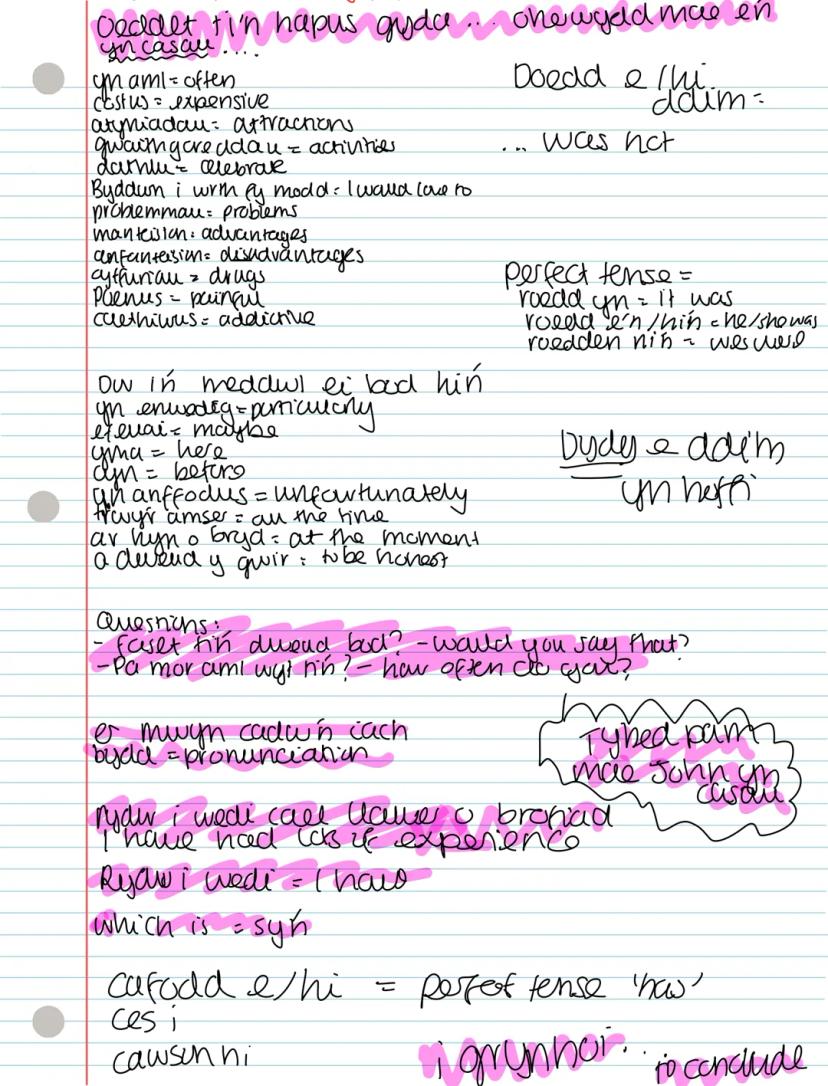 Oeddet ti'n hapus gyda ... ohewydd mae en
yn casau ....
yn aml = often
costus = expensive
atyniadau = attractions
gwaithgareddau = activities
dathlu = celebrate
Byddwn i wrth fy modd = I would love to
problemmau = problems
manteision = advantages
anfanteision = disadvantages
cyffuriau = drugs
Poenus = painful
caethiwus = addictive
Doedd e / hi
ddim =
... was not
perfect tense =
roedd yn = it was
roedd e'n / hi'n = he/she was
roedden ni'n = we were
Dw i'n meddwl ei bod hi'n
yn enwedig = particularly
efallai = maybe
yma = here
cyn = before
yn anffodus = unfortunately
trwy'r amser = all the time
ar hyn o bryd = at the moment
a dweud y gwir = to be honest
Dydy e ddim
yn hoffi
Questions:
- faset ti'n dweud bod? - would you say that?
- Pa mor aml wyt ti'n? - how often do you?
er mwyn cadw'n iach
bydd = pronunciation
Tybed pam
mae John yn
casau
rydw i wedi cael llawer o brofiad
I have had lots of experience
Rydw i wedi = I have
which is = sy'n
cafodd e/hi = perfect tense 'have'
ces i
cawson ni
i grynhoi... to conclude